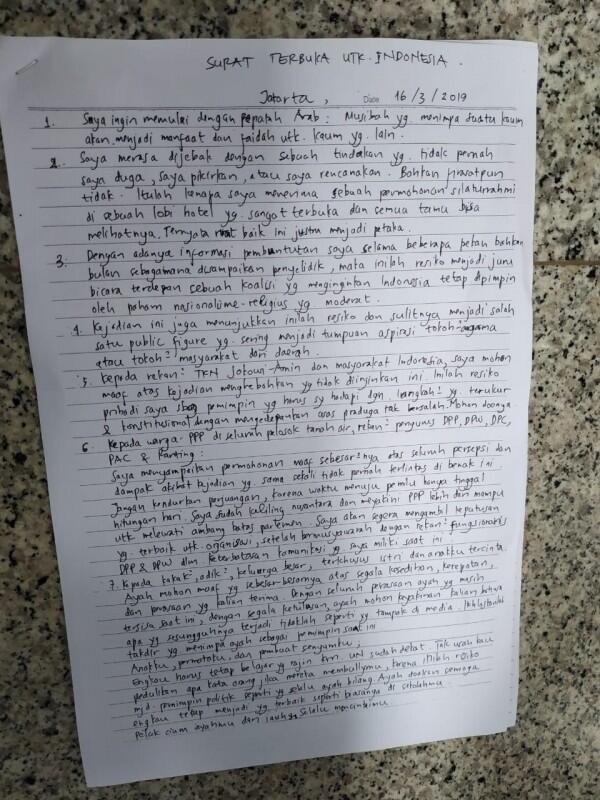 SURAT TERBUKA UTK. INDONESIA.
Jakarta, Date 16/3/2019
1. Saya ingin memulai dengan pepatah Arab: Musibah yg. menimpa suatu kaum
akan menjadi manfaat dan faidah utk. kaum yg. lain.
2. Saya merasa dijebak dengan sebuah tindakan yg. tidak pernah
saya duga, saya pikirkan, atau saya rencanakan. Bahkan firasatpun
tidak. Itulah kenapa saya menerima sebuah permohonan silaturrahmi
di sebuah lobi hotel yg. sangat terbuka dan semua tamu bisa
melihatnya. Ternyata niat baik ini justru menjadi petaka.
3. Dengan adanya informasi pembuntutan saya selama beberapa pekan bahkan
bulan sebagaimana disampaikan penyelidik, maka inilah resiko menjadi juru
bicara terdepan sebuah koalisi yg menginginkan Indonesia tetap dipimpin
oleh paham nasionalisme-religius yg moderat.
4. Kejadian ini juga menunjukkan inilah resiko dan sulitnya menjadi salah
satu public figure yg. sering menjadi tumpuan aspirasi tokoh² agama
atau tokoh² masyarakat dari daerah.
5. Kepada rekan² TKN Jokowi-Amin dan masyarakat Indonesia, saya mohon
maaf atas kejadian menghebohkan yg tidak diinginkan ini. Inilah resiko
pribadi saya sbg pemimpin yg harus sy hadapi dgn. langkah² yg terukur
& konstitusional dengan mengedepankan asas praduga tak bersalah. Mohon doanya
6. Kepada warga PPP di seluruh pelosok tanah air, rekan² pengurus DPP, DPW, DPC,
PAC & Ranting:
Saya menyampaikan permohonan maaf sebesar²nya atas seluruh persepsi dan
dampak akibat kejadian yg. sama sekali tidak pernah terlintas di benak ini.
Jangan kendurkan perjuangan, karena waktu menuju pemilu hanya tinggal
hitungan hari. Saya sudah keliling nusantara dan meyakini PPP lebih dari mampu
utk melewati ambang batas parlemen. Saya akan segera mengambil keputusan
yg. terbaik utk organisasi, setelah bermusyawarah dengan rekan² fungsionaris
DPP & DPW dlm keterbatasan komunikasi yg saya miliki saat ini.
7. Kepada kakak², adik², keluarga besar, terkhusus istri dan anakku tercinta.
Ayah mohon maaf yg sebesar-besarnya atas segala kesedihan, kerepotan,
dan perasaan yg kalian terima. Dengan seluruh perasaan ayah yg masih
tersisa saat ini, dengan segala ketulusan, ayah mohon keyakinan kalian bahwa
apa yg sesungguhnya terjadi tidaklah seperti yg tampak di media. Ikhlaskanlah
takdir yg menimpa ayah sebagai pemimpin saat ini
Anakku, permataku, dan pembuat senyumku,
Engkau harus tetap belajar yg rajin krn. UN sudah dekat. Tak usah kau
pedulikan apa kata orang, jika mereka membullymu, karena inilah resiko
mjd. pemimpin politik seperti yg selalu ayah bilang. Ayah doakan semoga
engkau tetap menjadi yg terbaik seperti biasanya di sekolahmu.
Peluk cium ayahmu dari jauh yg selalu mencintaimu